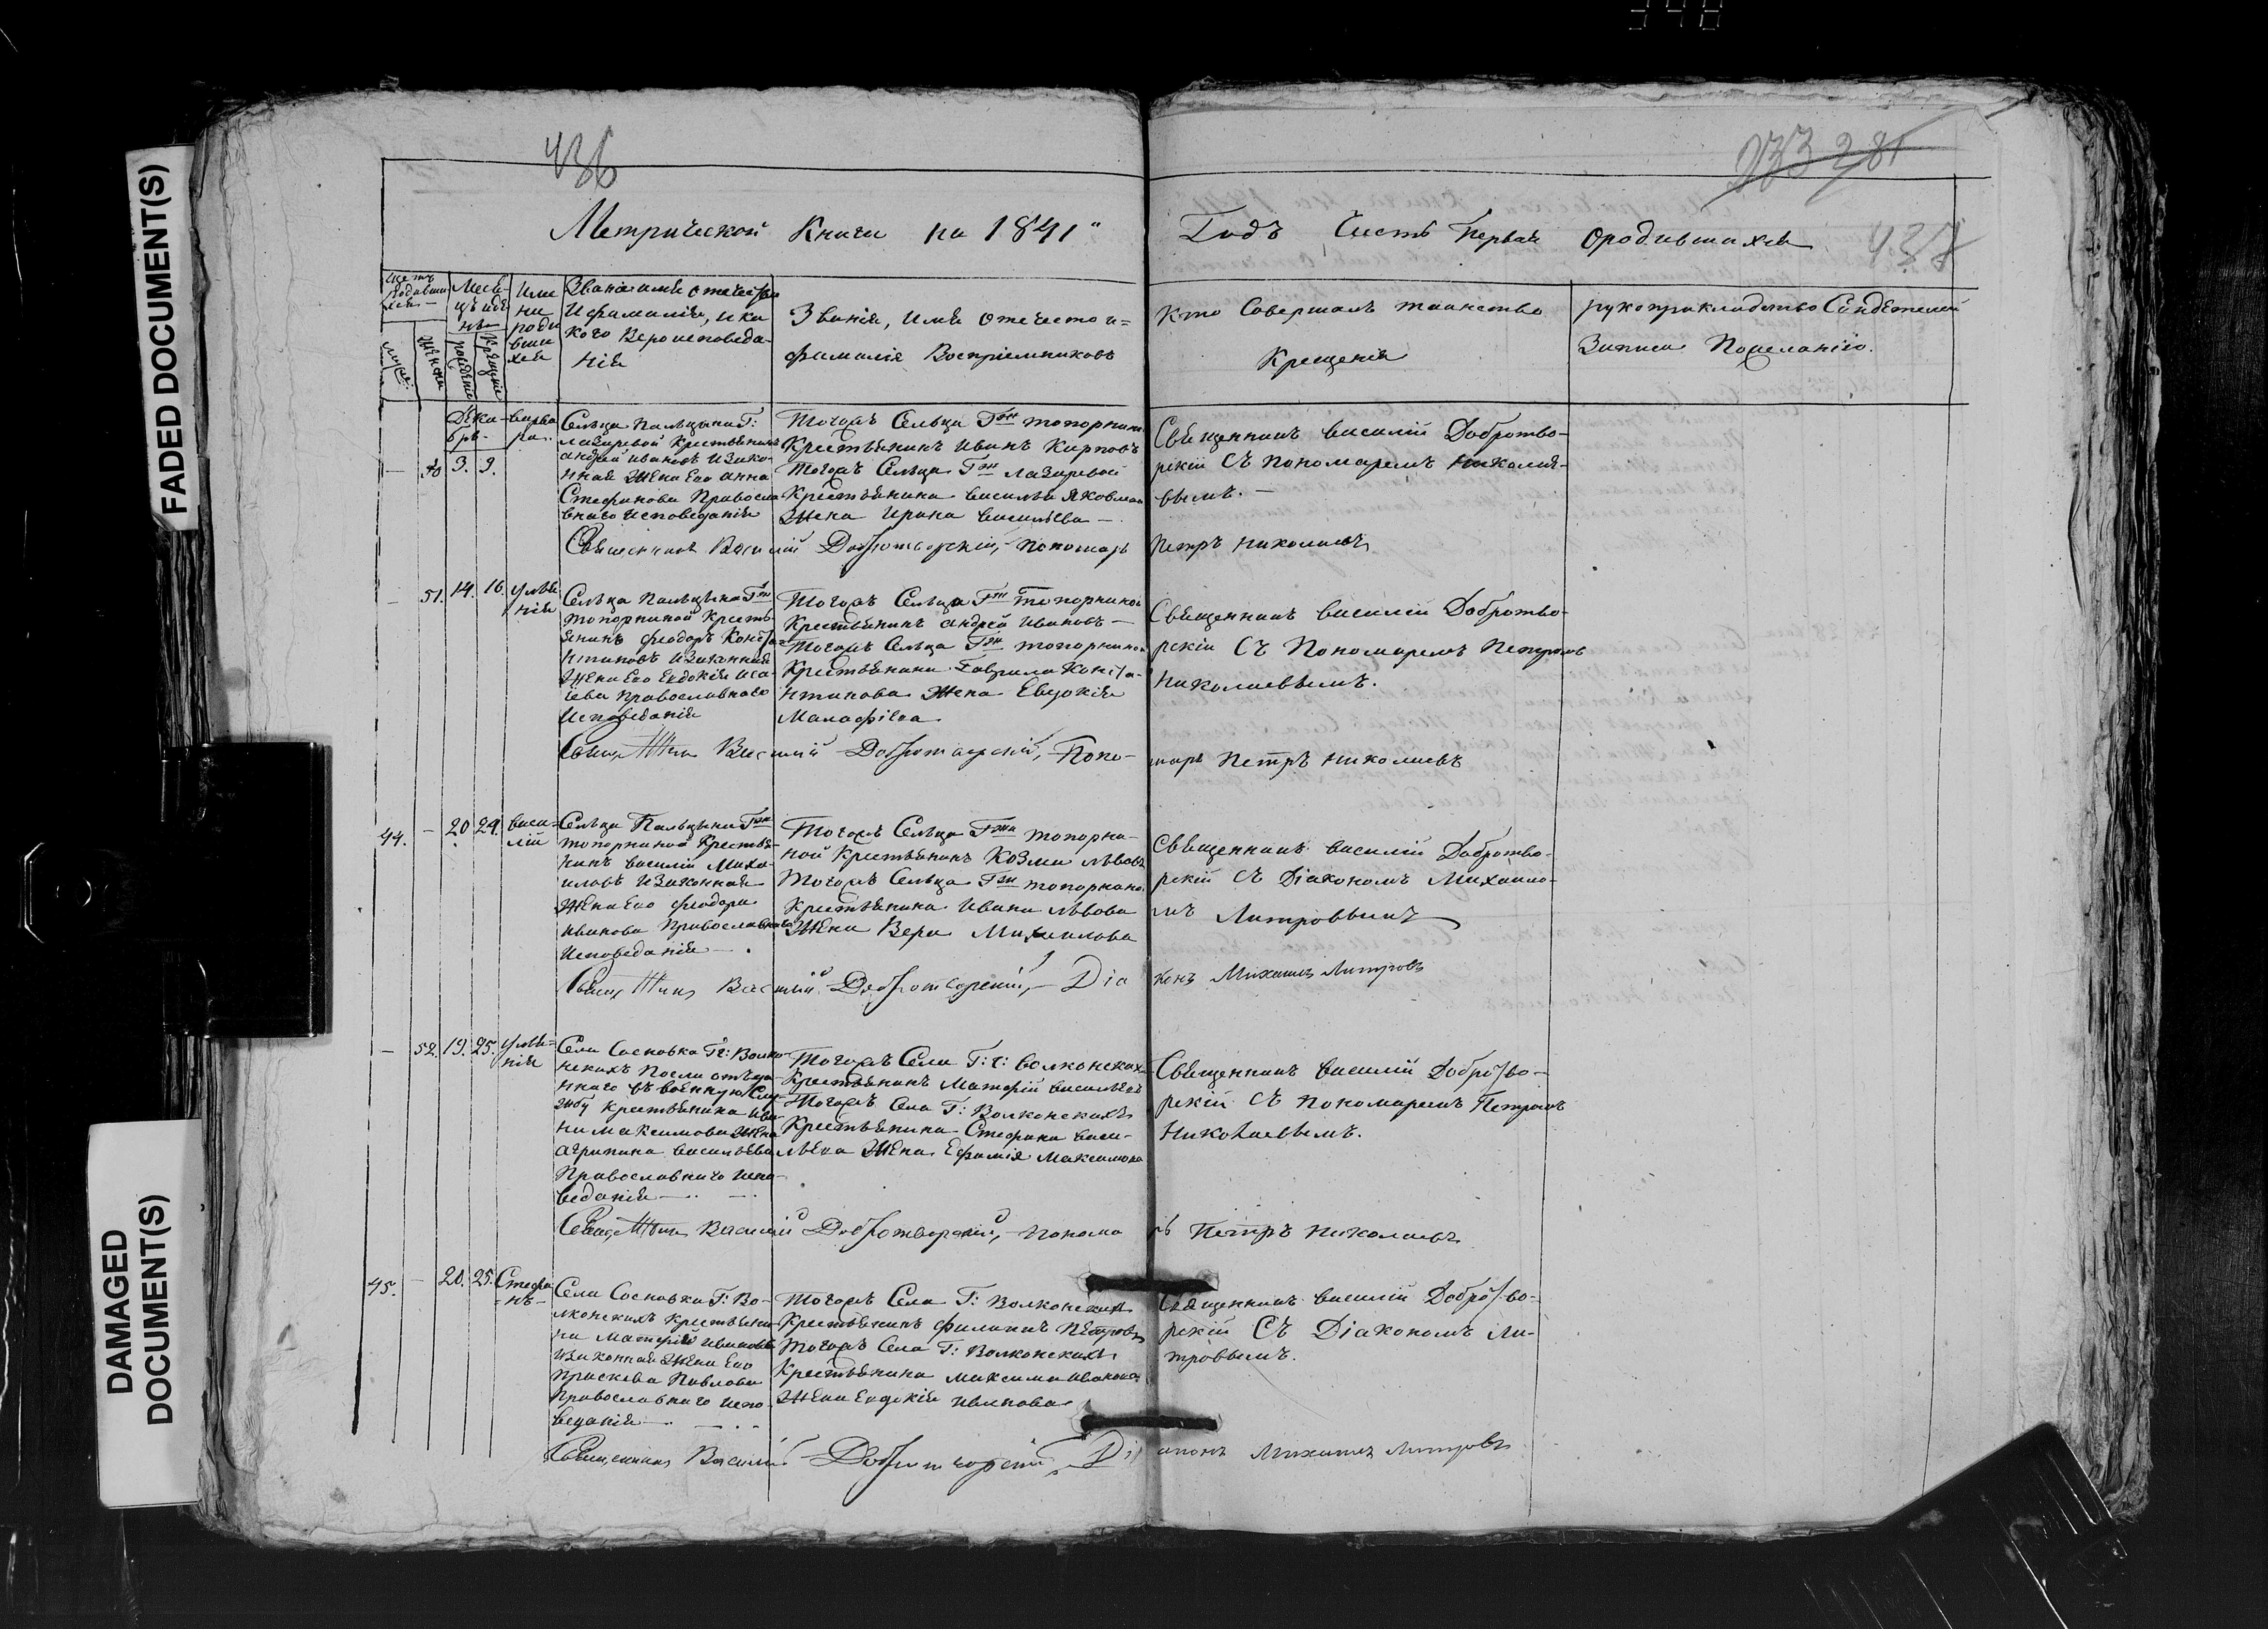 348
FADED DOCUMENT(S)
DAMAGED
DOCUMENT(S)
436
281
437
Метрической Книги на 1841"
Годъ Часть Первая ородившихся
Имя
ни
роди
вши
хся
Званія имя отечество
И фамилія, и ка
кого Вероисповеда-
нія
Званія, имя отечество и=
фамилія Воспріемниковъ
Кто Совершалъ таинство
Крещенія
рукоприкладство Свидетелей
Записи Пожеланію.
Дека-
брь
Варва
ра.
— 50 9. 9.
Сельца Пальцына Г:
лазаревой Крестьянинъ
андрей ивановъ изако-
нная Жена Его анна
Стефанова Правосла
внаго исповеданія
Тогожъ Сельца Г жи топорнин
Крестьянинъ иванъ Карповъ
Тогожъ Сельца Г жи лазаревой
Крестьянина василья яковлева
Жена ирина васильева —
Священникъ василій Добротво-
рскій Съ пономаремъ николае-
вымъ. —
Священникъ Василій Добротворскій, Пономарь Петръ николаевъ
— 51. 14. 16. ульяния
Сельца Пальцына Г жи
топорниной Кресть-
янинъ феодоръ Конста-
нтиновъ изаконная
Жена Его Евдокія иса-
ева православнаго
исповеданія
Тогожъ Сельца Г жи топорниной
Крестьянинъ андрей ивановъ —
Тогожъ Сельца Г жи топорниной
Крестьянина Гаврила Конста-
нтинова Жена Евдокія
Малафіева
Священникъ василій Добротво-
рскій Съ Пономаремъ Петромъ
николаевымъ.
Василій Добротворскій, Поно- марь Петръ николаевъ
44. — 20. 24. васи=
лій
Сельца Пальцына Г жи
топорниной Крестья-
нинъ василій Миха-
иловъ изаконная
Жена Его феодора
иванова Православнаго
исповеданія — .
Тогожъ Сельца Г жи топорни-
ной Крестьянинъ Козма львовъ
Тогожъ Сельца Г жи топорниной
Крестьянина ивана львова
Жена Вера Михаилова
Священникъ василій Добротво-
рскій Съ Діакономъ Михаило-
мъ Литровымъ
Василій Добротворскій, — Діа конъ Михаилъ Литровъ
— 52. 19. 25. улья=
нія
Села Сосновка Г: Волко-
нскихъ После отъда-
ннаго въ военную Слу-
жбу крестьянина ива
на максимова жена
агрипина васильева
Православнаго испо-
веданія — .. — ..
Тогожъ Села Г:г: волконскихъ
Крестьянинъ Матфій васильевъ
Тогожъ Села Г: Волконскихъ
Крестьянина Стефана васи-
льева Жена Ефимія Максимова
Священникъ василій Добротво-
рскій Съ пономаремъ Петромъ
Николаевымъ.
Василій Добротворскій, — понома рь Петръ николаевъ
45. — 20. 25. Стефа
=нъ—
Села Сосновка Г: Во-
лконскихъ Крестьяни-
на Матфій ивановъ
изаконная Жена Его
праскева Павлова
Православнаго испо-
веданія — ..
Тогожъ Села Г: Волконскихъ
Крестьянинъ филипъ Петровъ
Тогожъ Села Г: Волконскихъ
Крестьянина максима иванова
Жена Евдокія иванова
Священникъ василій Добротво-
рскій Съ Діакономъ Ли-
тровымъ.
Священникъ Василій Добротворскій, Ді аконъ Михаилъ Литровъ